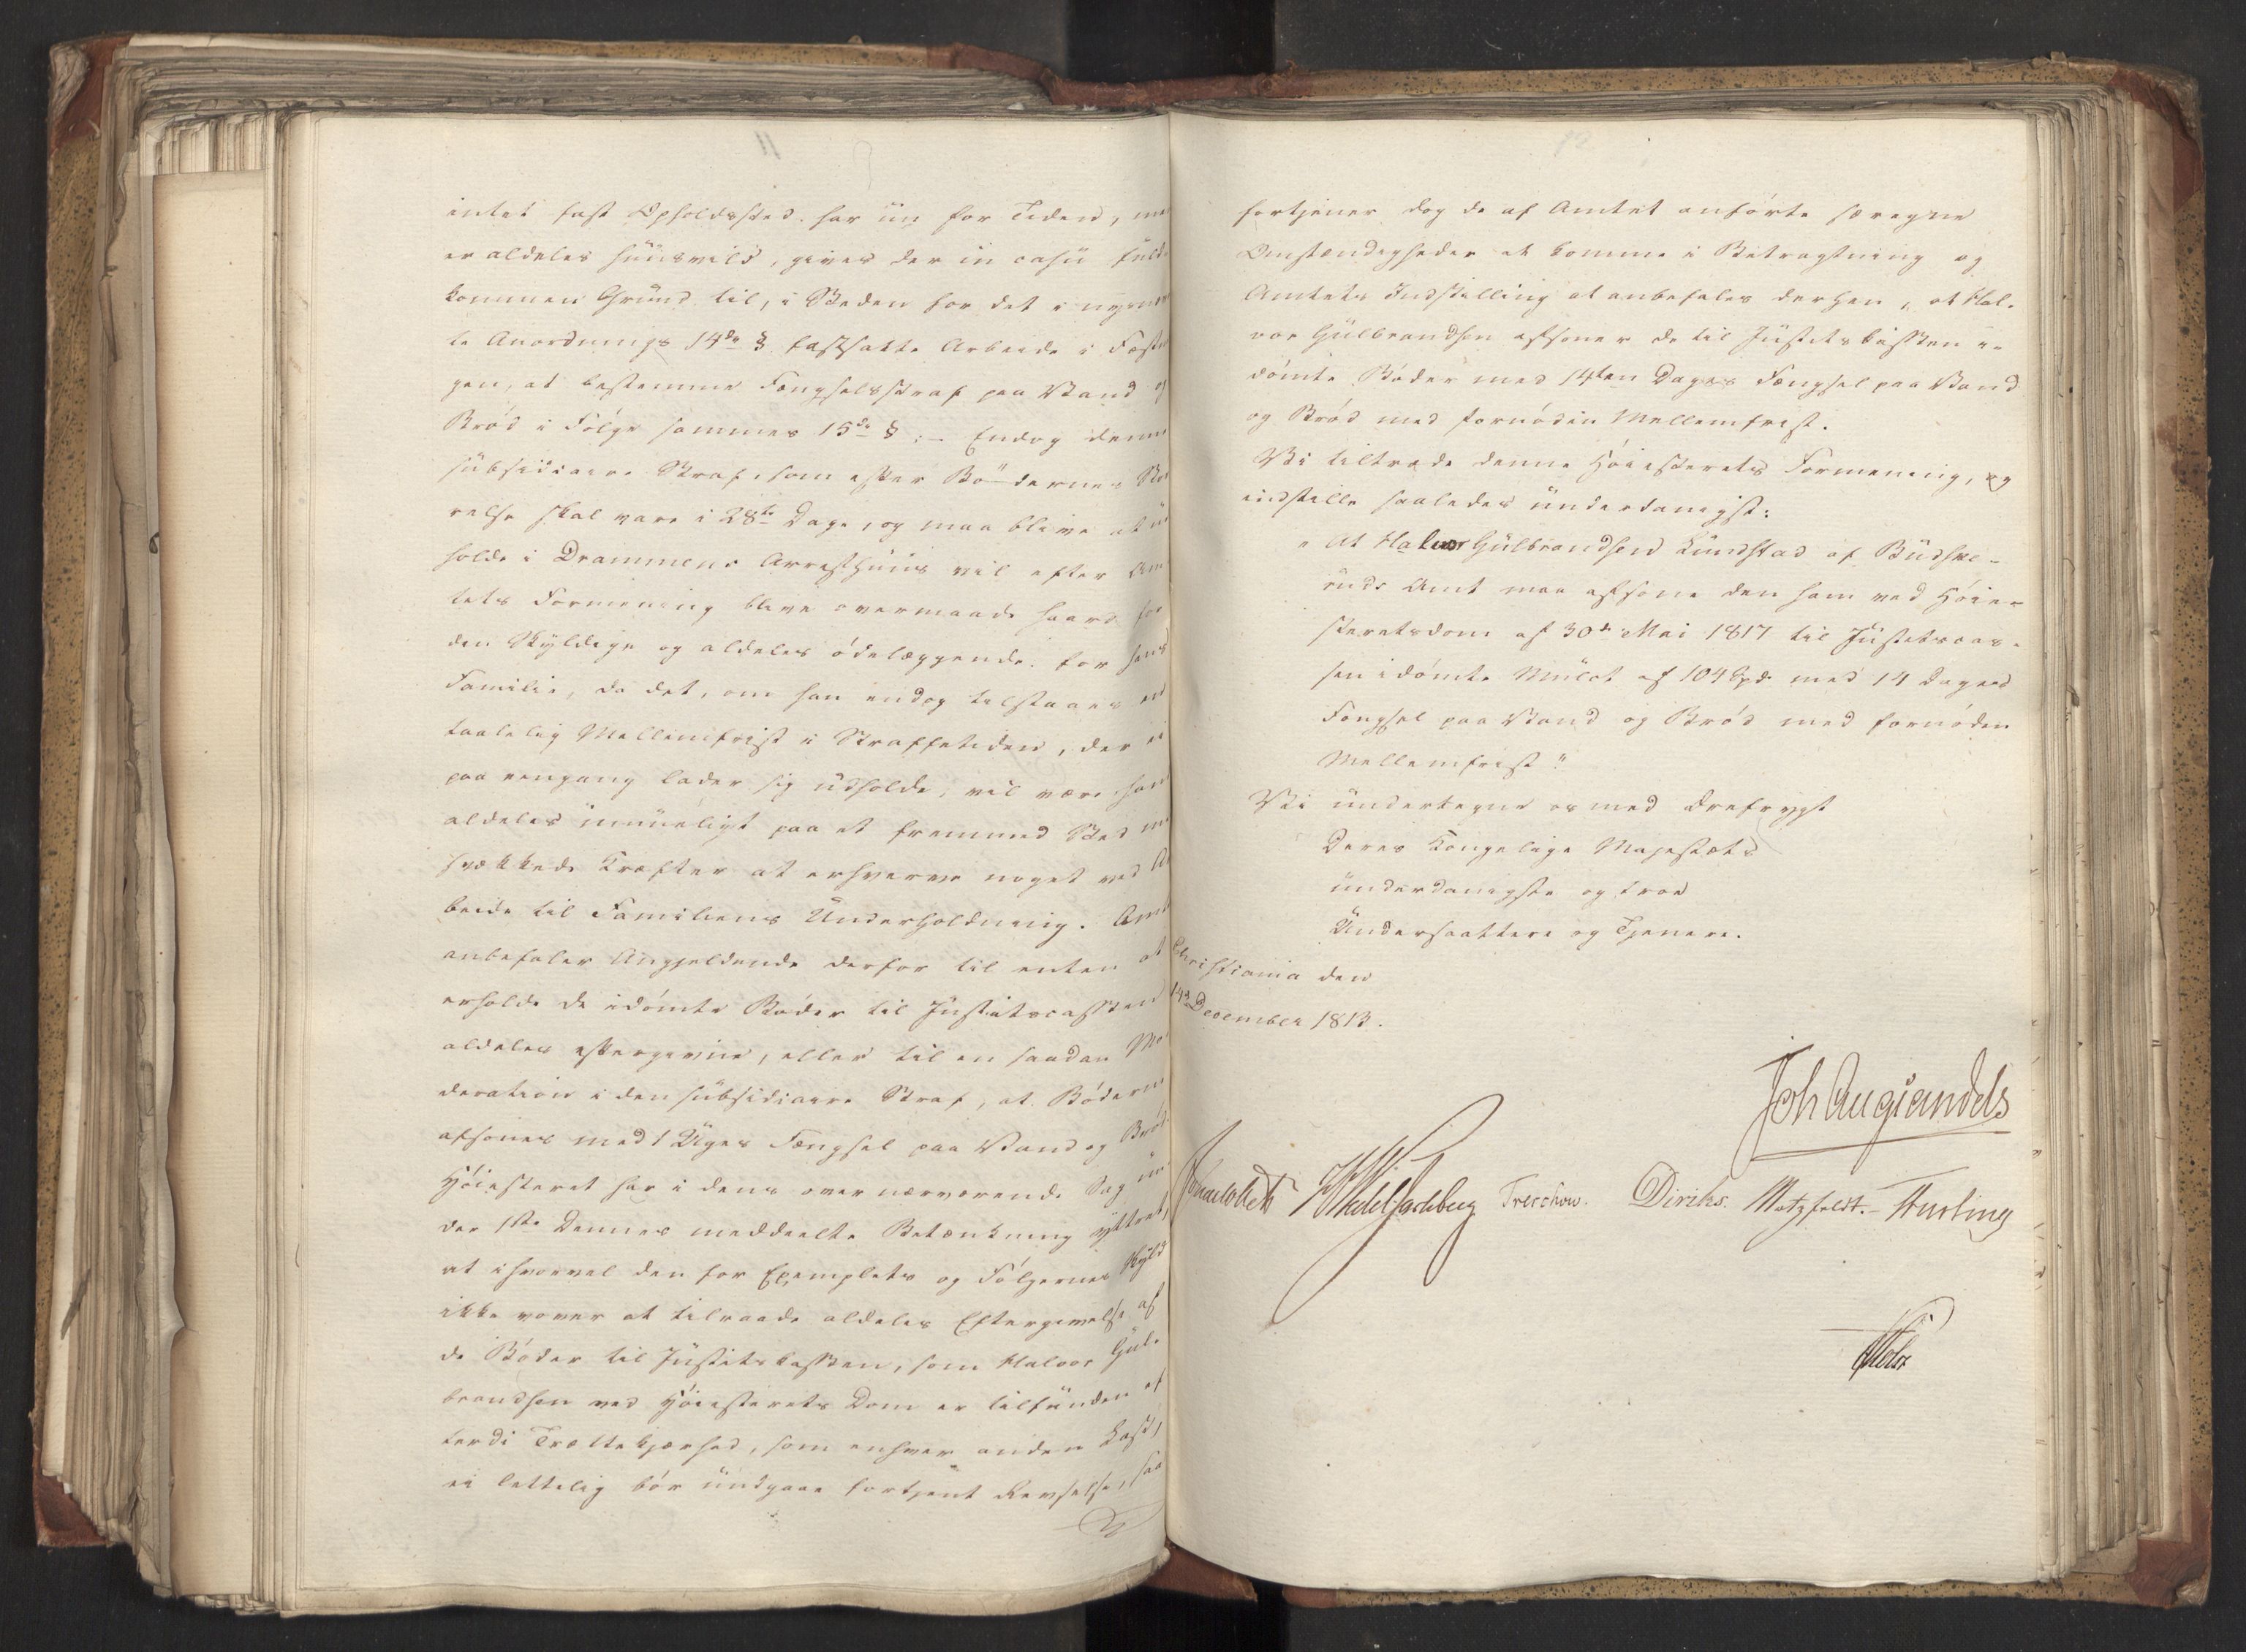 11
intet fast Opholdssted har nu for Tiden, men
er aldeles huusvild, gives der in casu fuld-
kommen Grund til, i Steden for det i nyene
te Anordnings 14de § fastsatte Arbeide i Fæstn
gen, at bestemme Fængselsstraf paa Vand og
Brød i Følge sammes 15de § :- Endog denne
subsidiaire Straf, som efter Bødernes Stø
relse skal vare i 28te Dage, og maa blive at ud
holde i Drammens Arresthuus vil efter Am
tets Formening blive overmaade haard for
den Skyldige og aldeles ødelæggende for hans
Familie, da det, om han endog tilstaaes en
taalelig Mellemfrist i Straffetiden, der ei
paa eengang lader sig udholde, vil være ham
aldeles umueligt paa et fremmed Sted med
svækkede Kræfter at erhverve noget ved Ar
beide til Familiens Underholdning. Amtet
anbefaler Angjeldende derfor til enten at
erholde de idømte Bøder til Justitscassen
aldeles eftergivne, eller til en saadan Mo-
deration i den subsidiaire Straf, at Bøderne
afsones med 1 Uges Fængsel paa Vand og Brød.
Høiesteret har i dens over nærværende Sag un-
der 1ste Dennes meddeelte Betænkning yttret,
at ihvorvel den for Exemplets og Følgernes Skyld
ikke vover at tilraade aldeles Eftergivelse af
de Bøder til Justitskassen, som Halvor Gul-
brandsen ved Høiesterets Dom er tilfunden ef
terdi Trættekjærhed, som enhver anden Last,
ei lettelig bør undgaae fortjent Revselse, saa
12
fortjener dog de af Amtet anførte særegne
Omstændigheder at komme i Betragtning og
Amtets Indstilling at anbefales derhen, at Hal-
vor Gulbrandsen afsoner de til Justitskassen i-
dømte Bøder med 14ten Dages Fængsel paa Vand
og Brød med fornøden Mellemfrist.
Vi tiltræde denne Høiesterets Formening, og
indstille saaledes underdanigst:
"At Halvor Gulbrandsen Kundstad af Budske-
ruds Amt maa afsone den ham ved Høie-
steretsdom af 30de Mai 1817 til Justitscas-
sen idømte Mulct af 104 Spd. med 14 Dages
Fængsel paa Vand og Brød med fornøden
Mellemfrist"
Vi undertegne os med Ærefrygt
Deres Kongelige Majestæts
underdanigste og troe
Undersaatter og Tjenere.
Christiania den
14de December 1818.
Joh Aug Sandels
JHVedel Jarlsberg Treschow. Diriks. Motzfeldt. Hurling
Holst